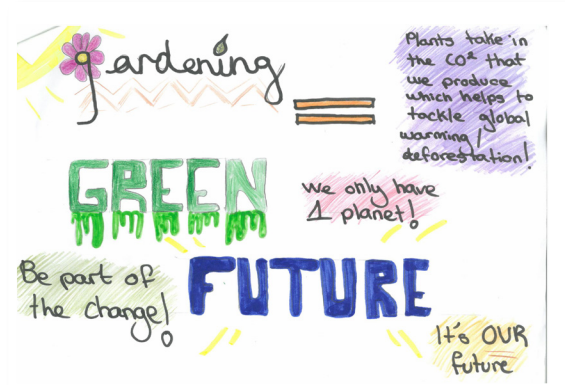 gardening =
Plants take in
the CO² that
we produce
which helps to
tackle global
warming/
deforestation!
GREEN
we only have
1 planet!
FUTURE
Be part of
the change!
It's OUR
future